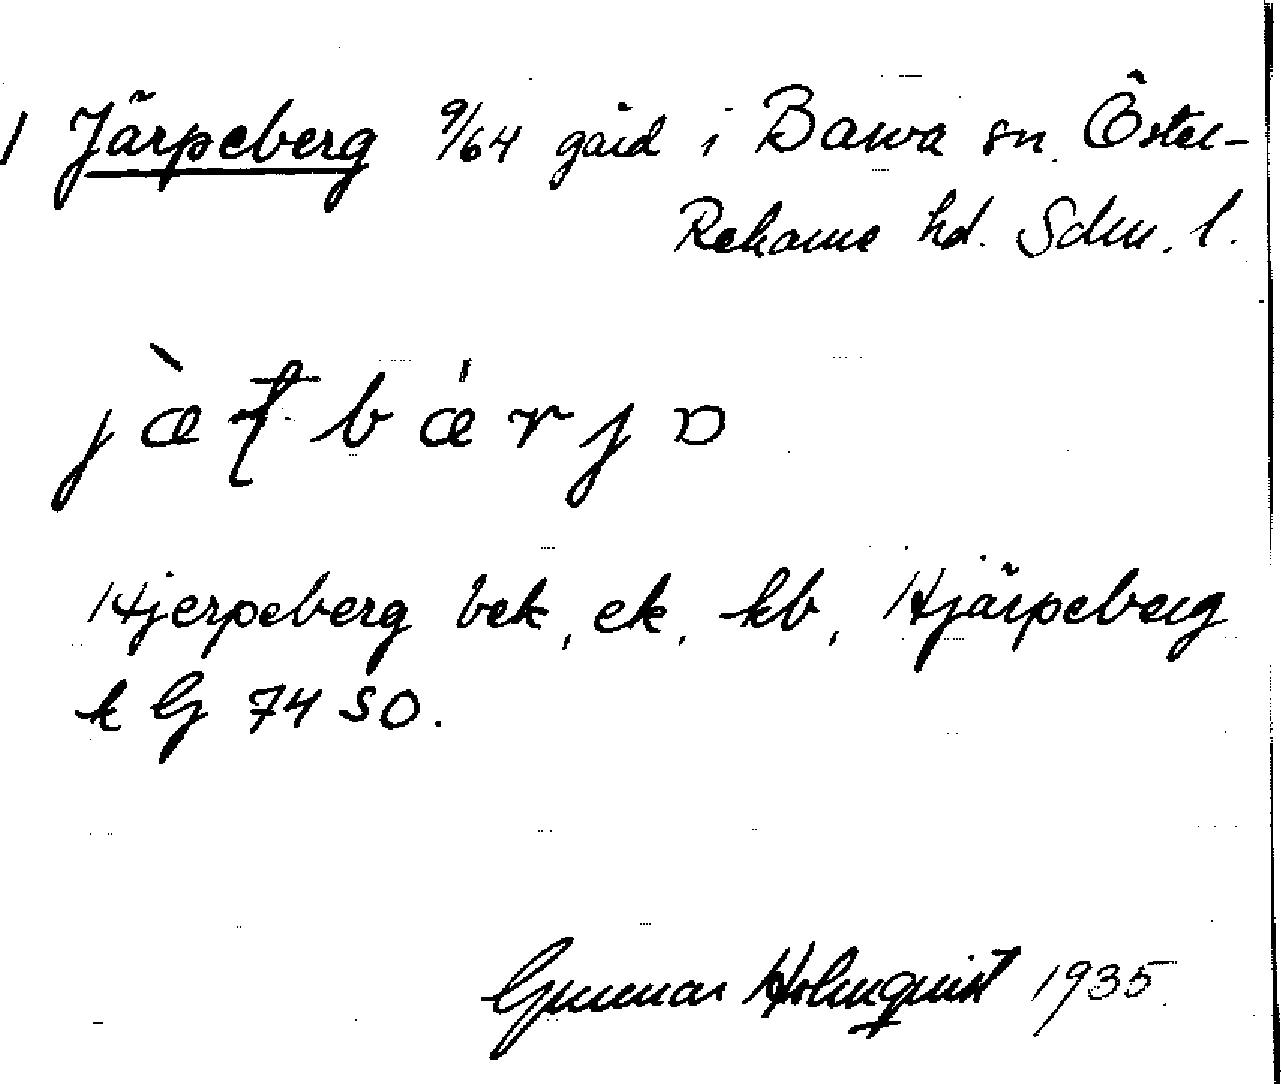 1 Järpeberg 9/64 gård i Barva sn. Öster-
Rekarne hd. Sdm. l.
Hjerpeberg bek, ek, kb, Hjärpeberg
k G 74 SO.
Gunnar Holmqvist 1935